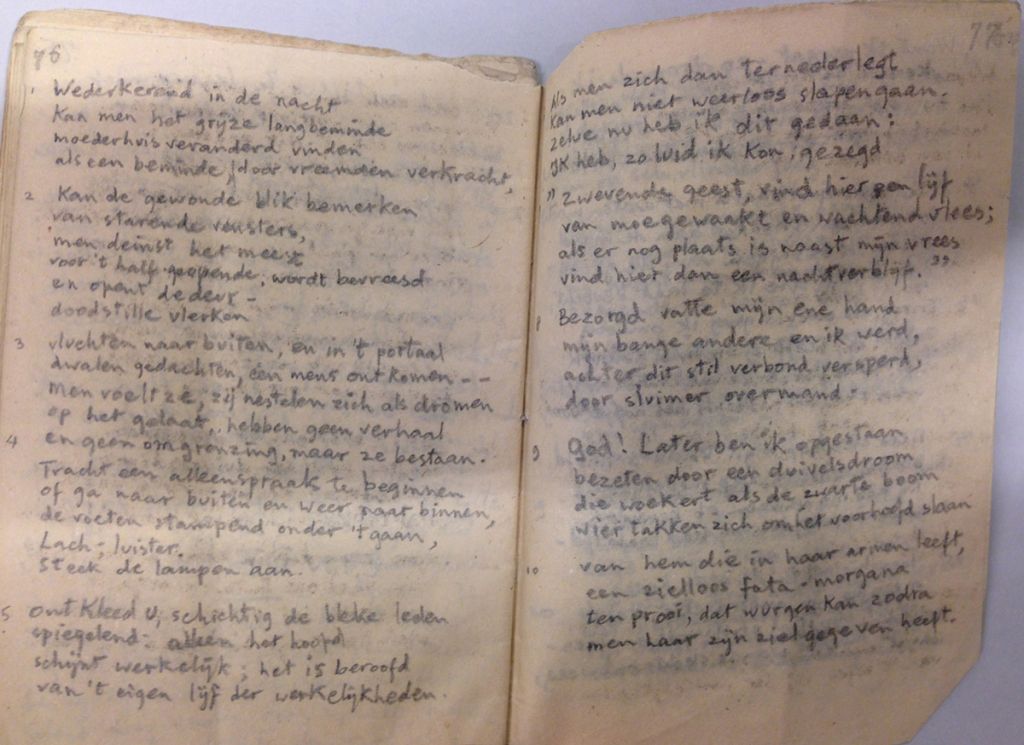 76
1 Wederkerend in de nacht
Kan men het grijze langbeminde
moederhuis veranderd vinden
als een beminde, door vreemden verkracht,
2 Kan de gewonde blik bemerken
van starende vensters,
men deinst het meest
voor 't half-geopende, wordt bevreesd
en opent de deur -
doodstille vlerken
3 vluchten naar buiten, en in 't portaal
dwalen gedachten, een mens ontkomen --
Men voelt ze, zij nestelen zich als dromen
op het gelaat, hebben geen verhaal
en geen omgrenzing, maar ze bestaan.
4 Tracht een alleenspraak te beginnen
of ga naar buiten en weer naar binnen,
de voeten stampend onder 't gaan,
Lach; luister.
steek de lampen aan.
5 ontkleed u, schichtig de bleke leden
spiegelend: alleen het hoofd
schijnt werkelijk; het is beroofd
van 't eigen lijf der werkelijkheden.
77
Als men zich dan ternederlegt
Kan men niet weerloos slapen gaan.
zelve nu heb ik dit gedaan:
IK heb, zo luid ik kon, gezegd
" Zwevende geest, vind hier een lijf
van moegewaakt en wachtend vlees;
als er nog plaats is naast mijn vrees
vind hier dan een nachtverblijf."
8 Bezorgd vatte mijn ene hand
mijn bange andere en ik werd,
achter dit stil verbond versperd,
door sluimer overmand.
9 God! Later ben ik opgestaan
bezeten door een duivelsdroom
die woekert als de zwarte boom
wier takken zich om het voorhoofd slaan
10 van hem die in haar armen leeft,
een zielloos fata-morgana
ten prooi, dat wurgen kan zodra
men haar zijn ziel gegeven heeft.